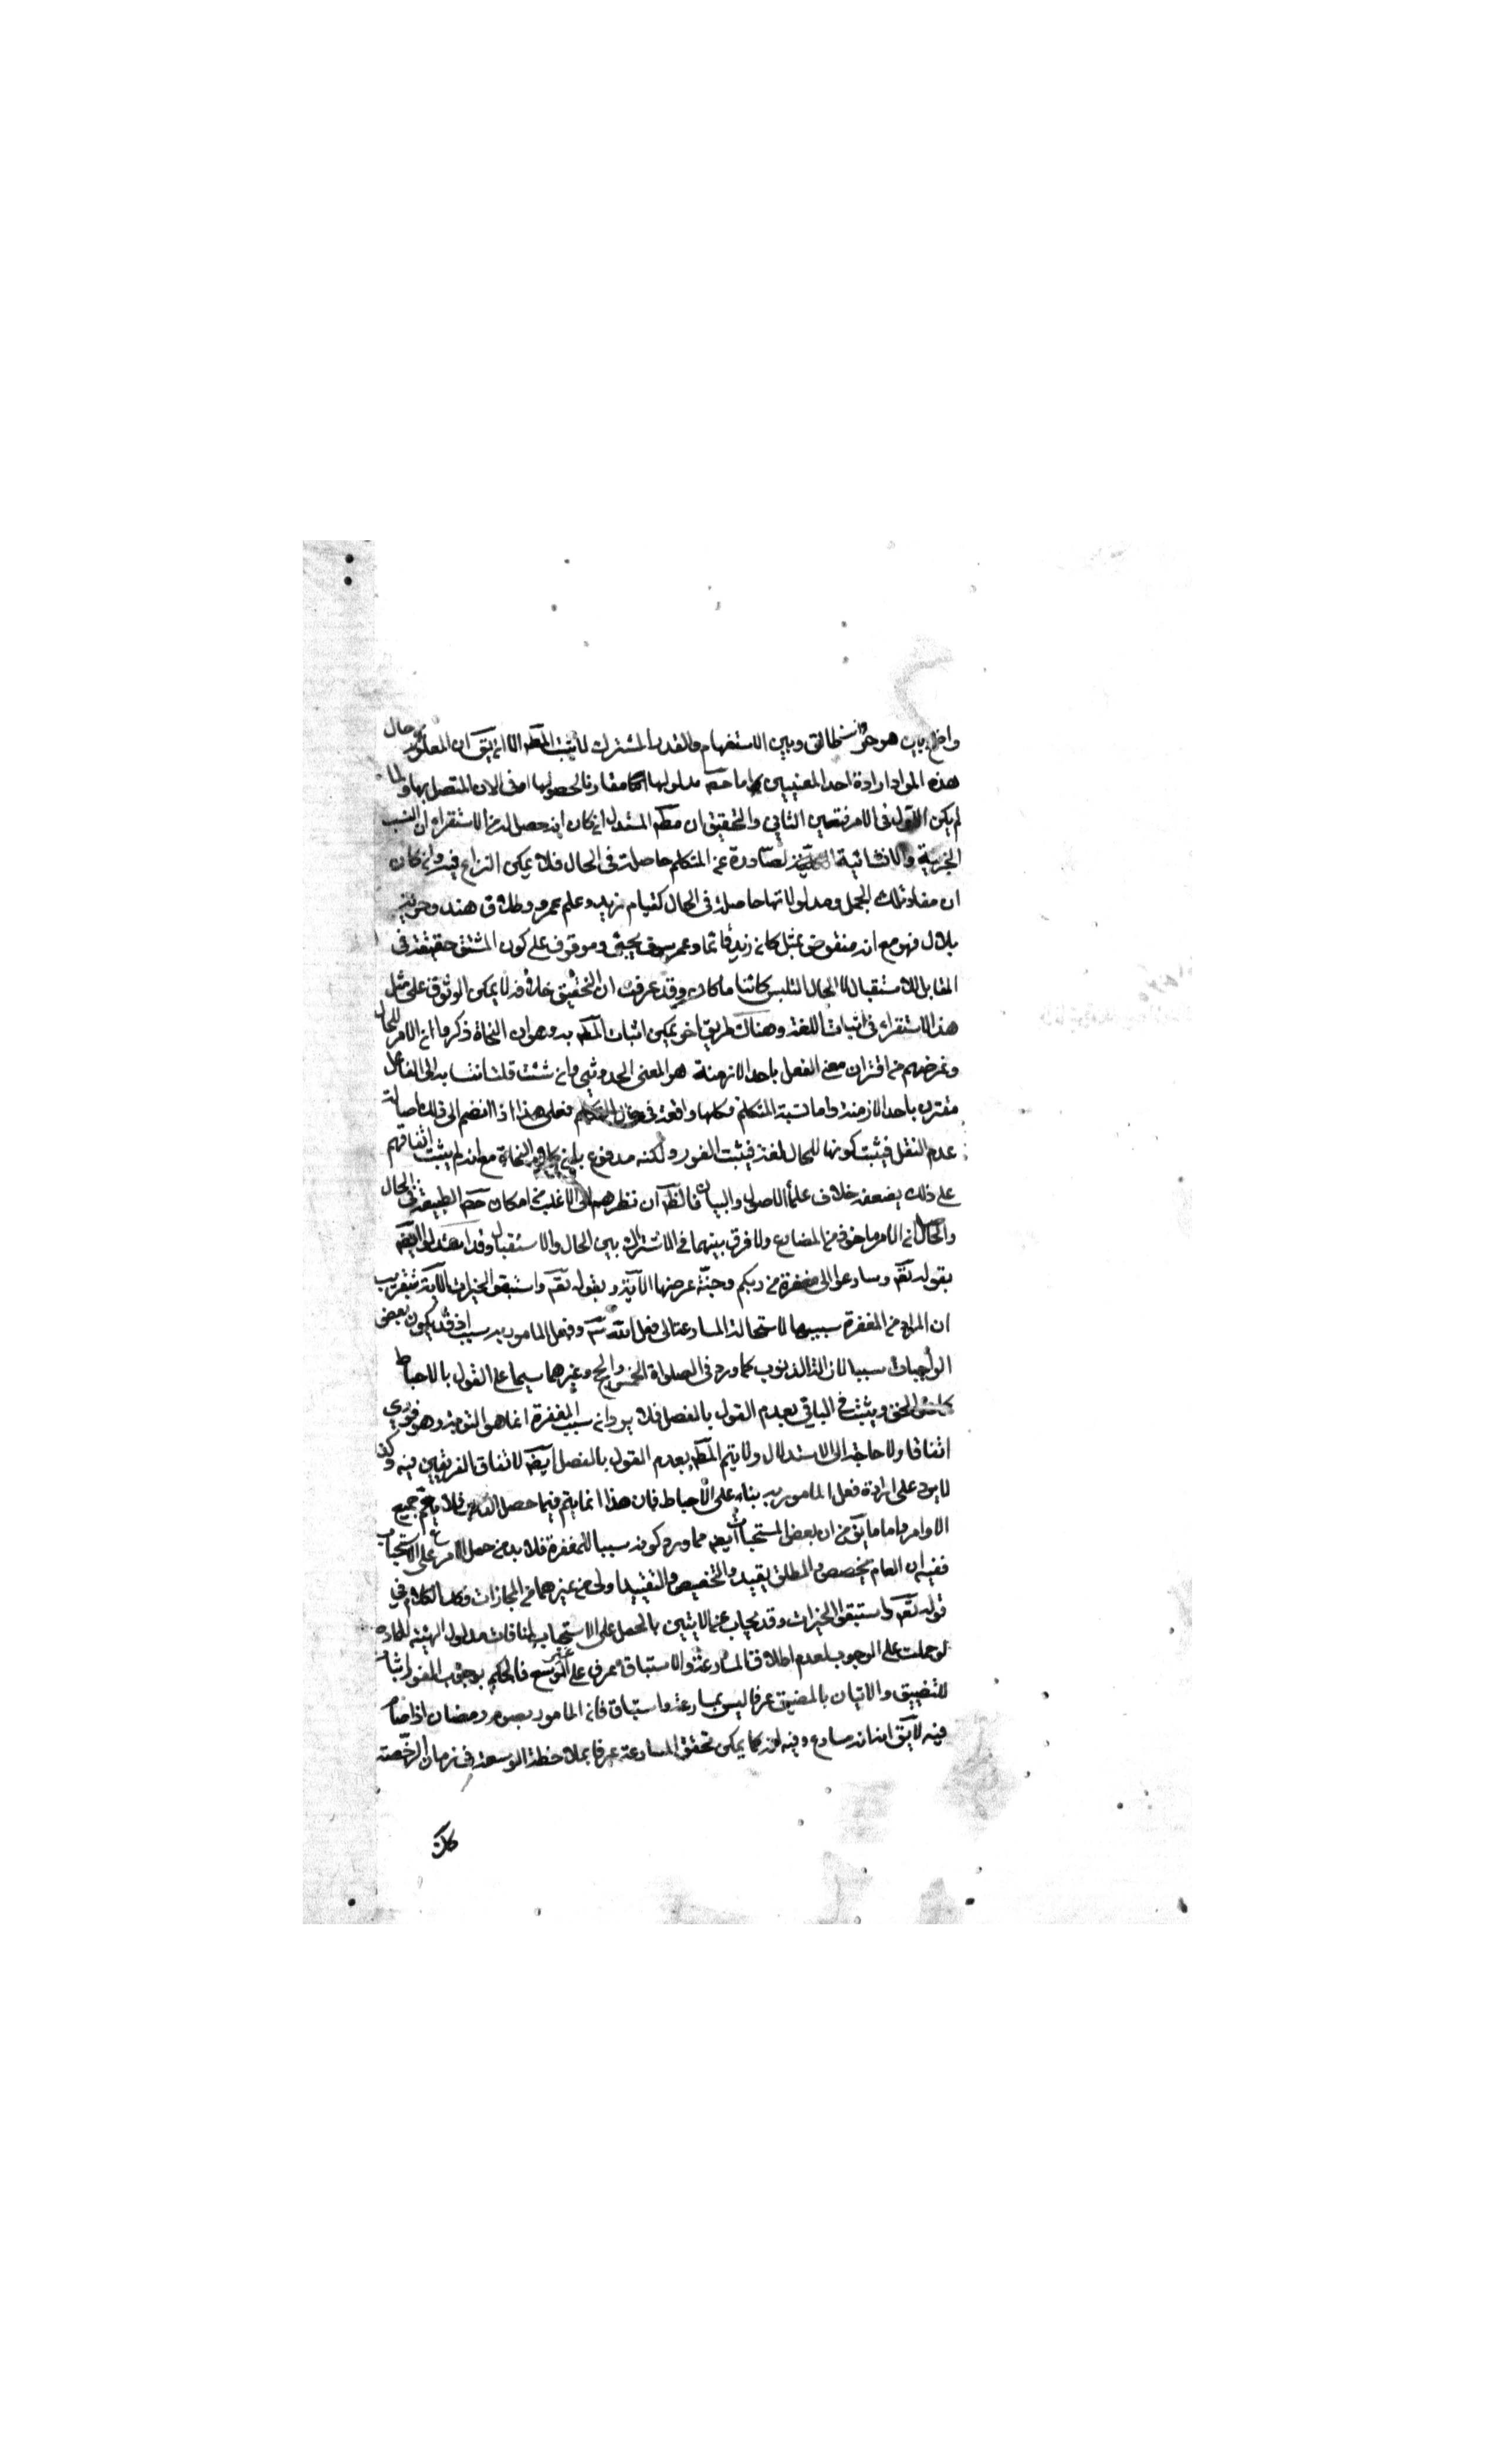 واضح بين هو حر وانت طالق وبين الاستفهام والقدر المشترك لا يثبت المط الا ان يق ان المعلوم حال
هذه المواد ارادة احد المعنيين اما حصه مدلولها مقارنا لحصولها او فى الان المتصل بها ولما
لم يكن الاول فى الامر فتعين الثاني والتحقيق ان مط المستدل ان كان انه حصل له من الاستقراء ان النسب
الخبرية والانشائية الصادرة عن المتكلم حاصلة فى الحال فلا يمكن النزاع فيه وان كان
ان مفاد تلك الجمل ومدلولاتها حاصلة فى الحال كقيام زيد وعلم عمرو وطلاق هند وحرية
بلال فهو مع انه منقوض بمثل كان زيد قائما وعمرو سوف يجئ وموقوف على كون المشتق حقيقة فى
المقابل للاستقبال لا الحال التلبس كائنا ما كان وقد عرفت ان التحقيق خلافه لا يمكن الوثوق على مثل
هذا الاستقراء فى اثبات اللغة وهناك طريق اخر يمكن اثبات المط به وهو ان النحاة ذكروا ان الامر للحال
وغرضهم من اقتران معنى الفعل باحد الازمنة هو المعنى الحدوثي وان شئت قلت انتسابه الى الفاعل
مقترن باحد الازمنة واما نسبة المتكلم فكلها واقعة فى حال التكلم فعلى هذا اذا انضم الى ذلك اصالة
عدم النقل فيثبت كونها للحال لغة فيثبت الفور ولكنه مدفوع بان كلام النحاة مع انه لم يثبت اتفاقهم
على ذلك يضعفه خلاف علماء الاصول والبيان فالظ ان نظرهم الى الاغلب مع امكان حصه الطبيعة فى الحال
والحال ان الامر ماخوذ من المضارع ولا فرق بينهما فى الاشتراك بين الحال والاستقبال وقد استدلوا ايضه
بقوله تعم وسارعوا الى مغفرة من ربكم وجنة عرضها الاية وبقوله تعم واستبقوا الخيرات الاية بتقريب
ان المراد من المغفرة سببها لاستحالة المسارعة الى فعل الله تم وفعل المامور به سبب اذ قد يكون بعض
الواجبات سببا لازالة الذنوب كما ورد فى الصلواة الخمس والحج وغيرهما سيما على القول بالاحباط
كما هو الحق ويثبت فى الباقي بعدم القول بالفصل فلا يرد ان سبب المغفرة انما هو التوبة وهو فوري
اتفاقا ولا حاجة الى الاستدلال ولا يتم المط بعدم القول بالفصل ايضه لاتفاق الفريقين فيه وكذا
لا يرد على ارادة فعل المامور به بناء على الاحباط فان هذا انما يتم فيما حصل الذنب فلا يعم جميع
الاوامر واما ما يق من ان بعض المستحبات ايضه مما ورد كونه سببا للمغفرة فلا بد من حمل الامر على الاستحباب
ففيه ان العام يخصص والمطلق يقيد والتخصيص والتقييد اولى من غيرهما من المجازات وكذا الكلام فى
قوله تعم واستبقوا الخيرات وقد يجاب عن الايتين بالحمل على الاستحباب لمنافات مدلول الهيئة للمادة
لو حملت على الوجوب لعدم اطلاق المسارعة والاستباق عرفا على غير الموسع فالحكم بوجوب الفور اثبات
للتضييق والاتيان بالمضيق عرفا ليس بمسارعة واستباق فان المامور بصوم رمضان اذا صام
فيه لا يق انه سارع وفيه انه كما يمكن تحقق المسارعة عرفا بملاحظة الوسعة فى زمان الرخصة
كك